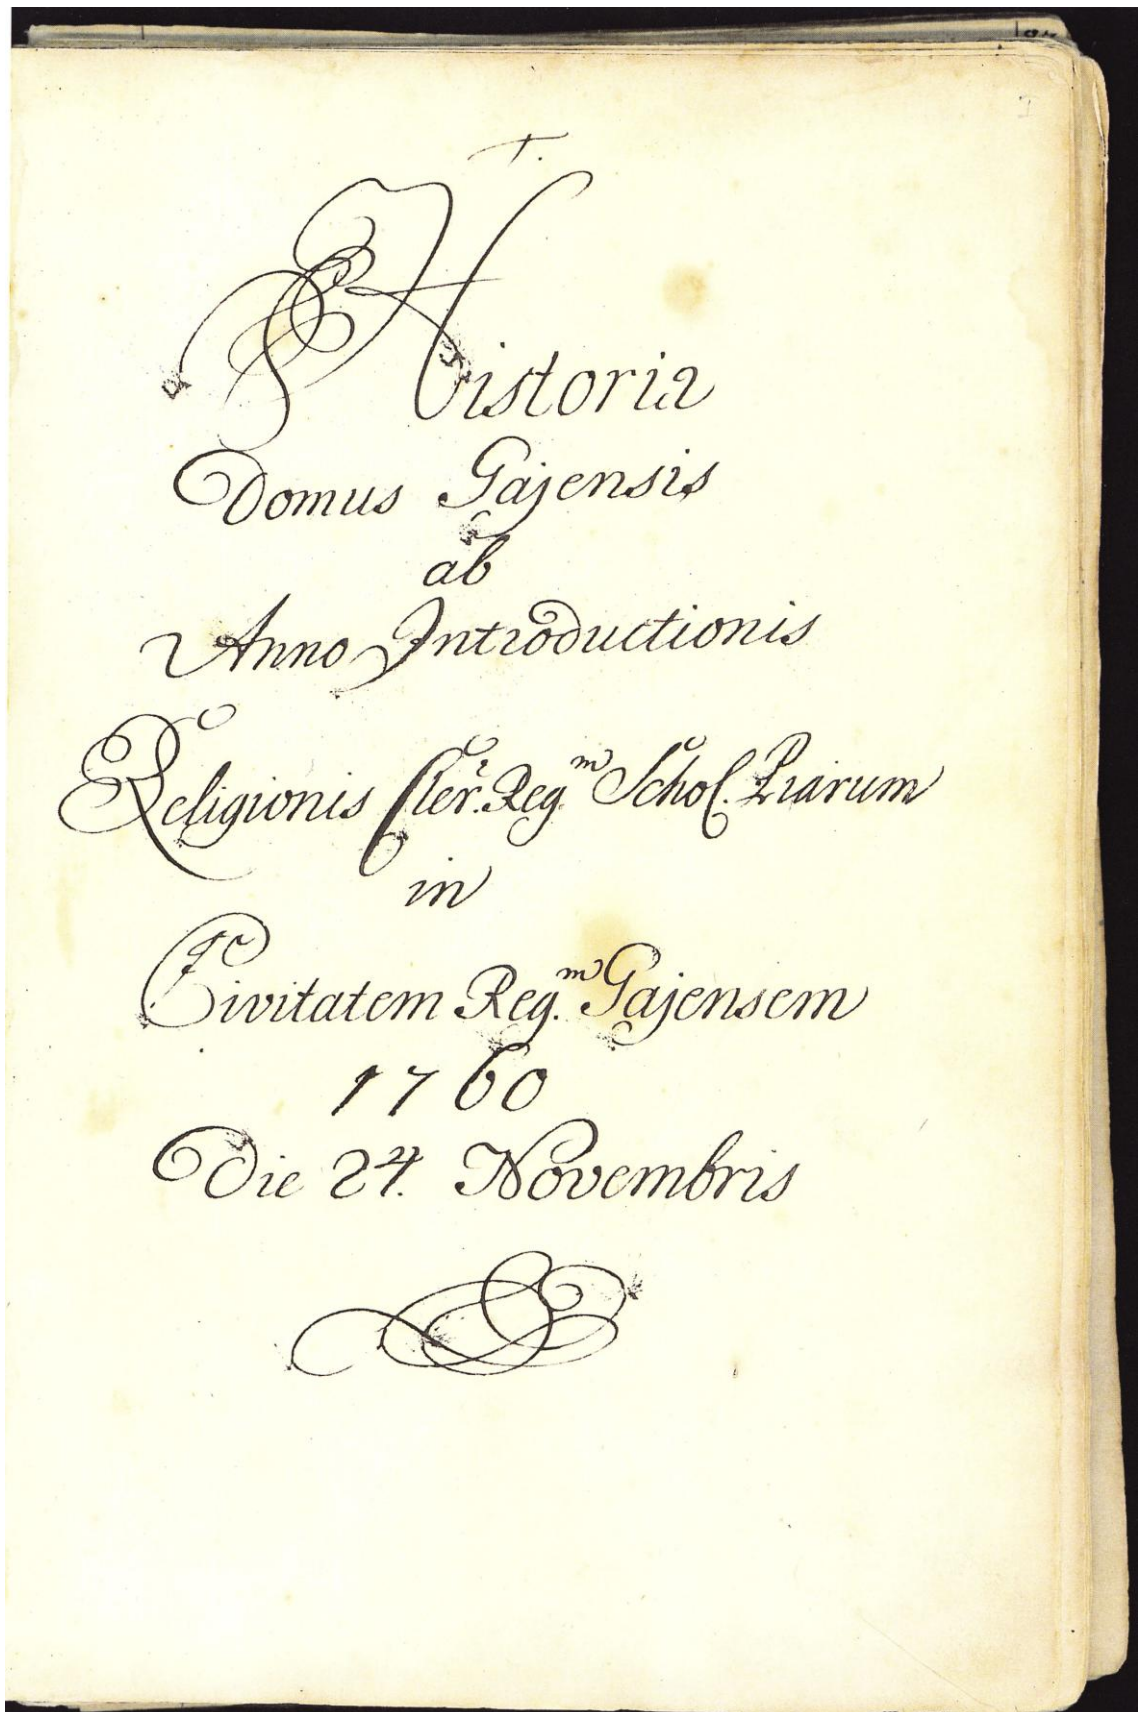 Historia
Domus Gajensis
ab
Anno Introductionis
Religionis Cler. Reg.m Schol. Piarum
in
Civitatem Reg.m Gajensem
1760
Die 24. Novembris